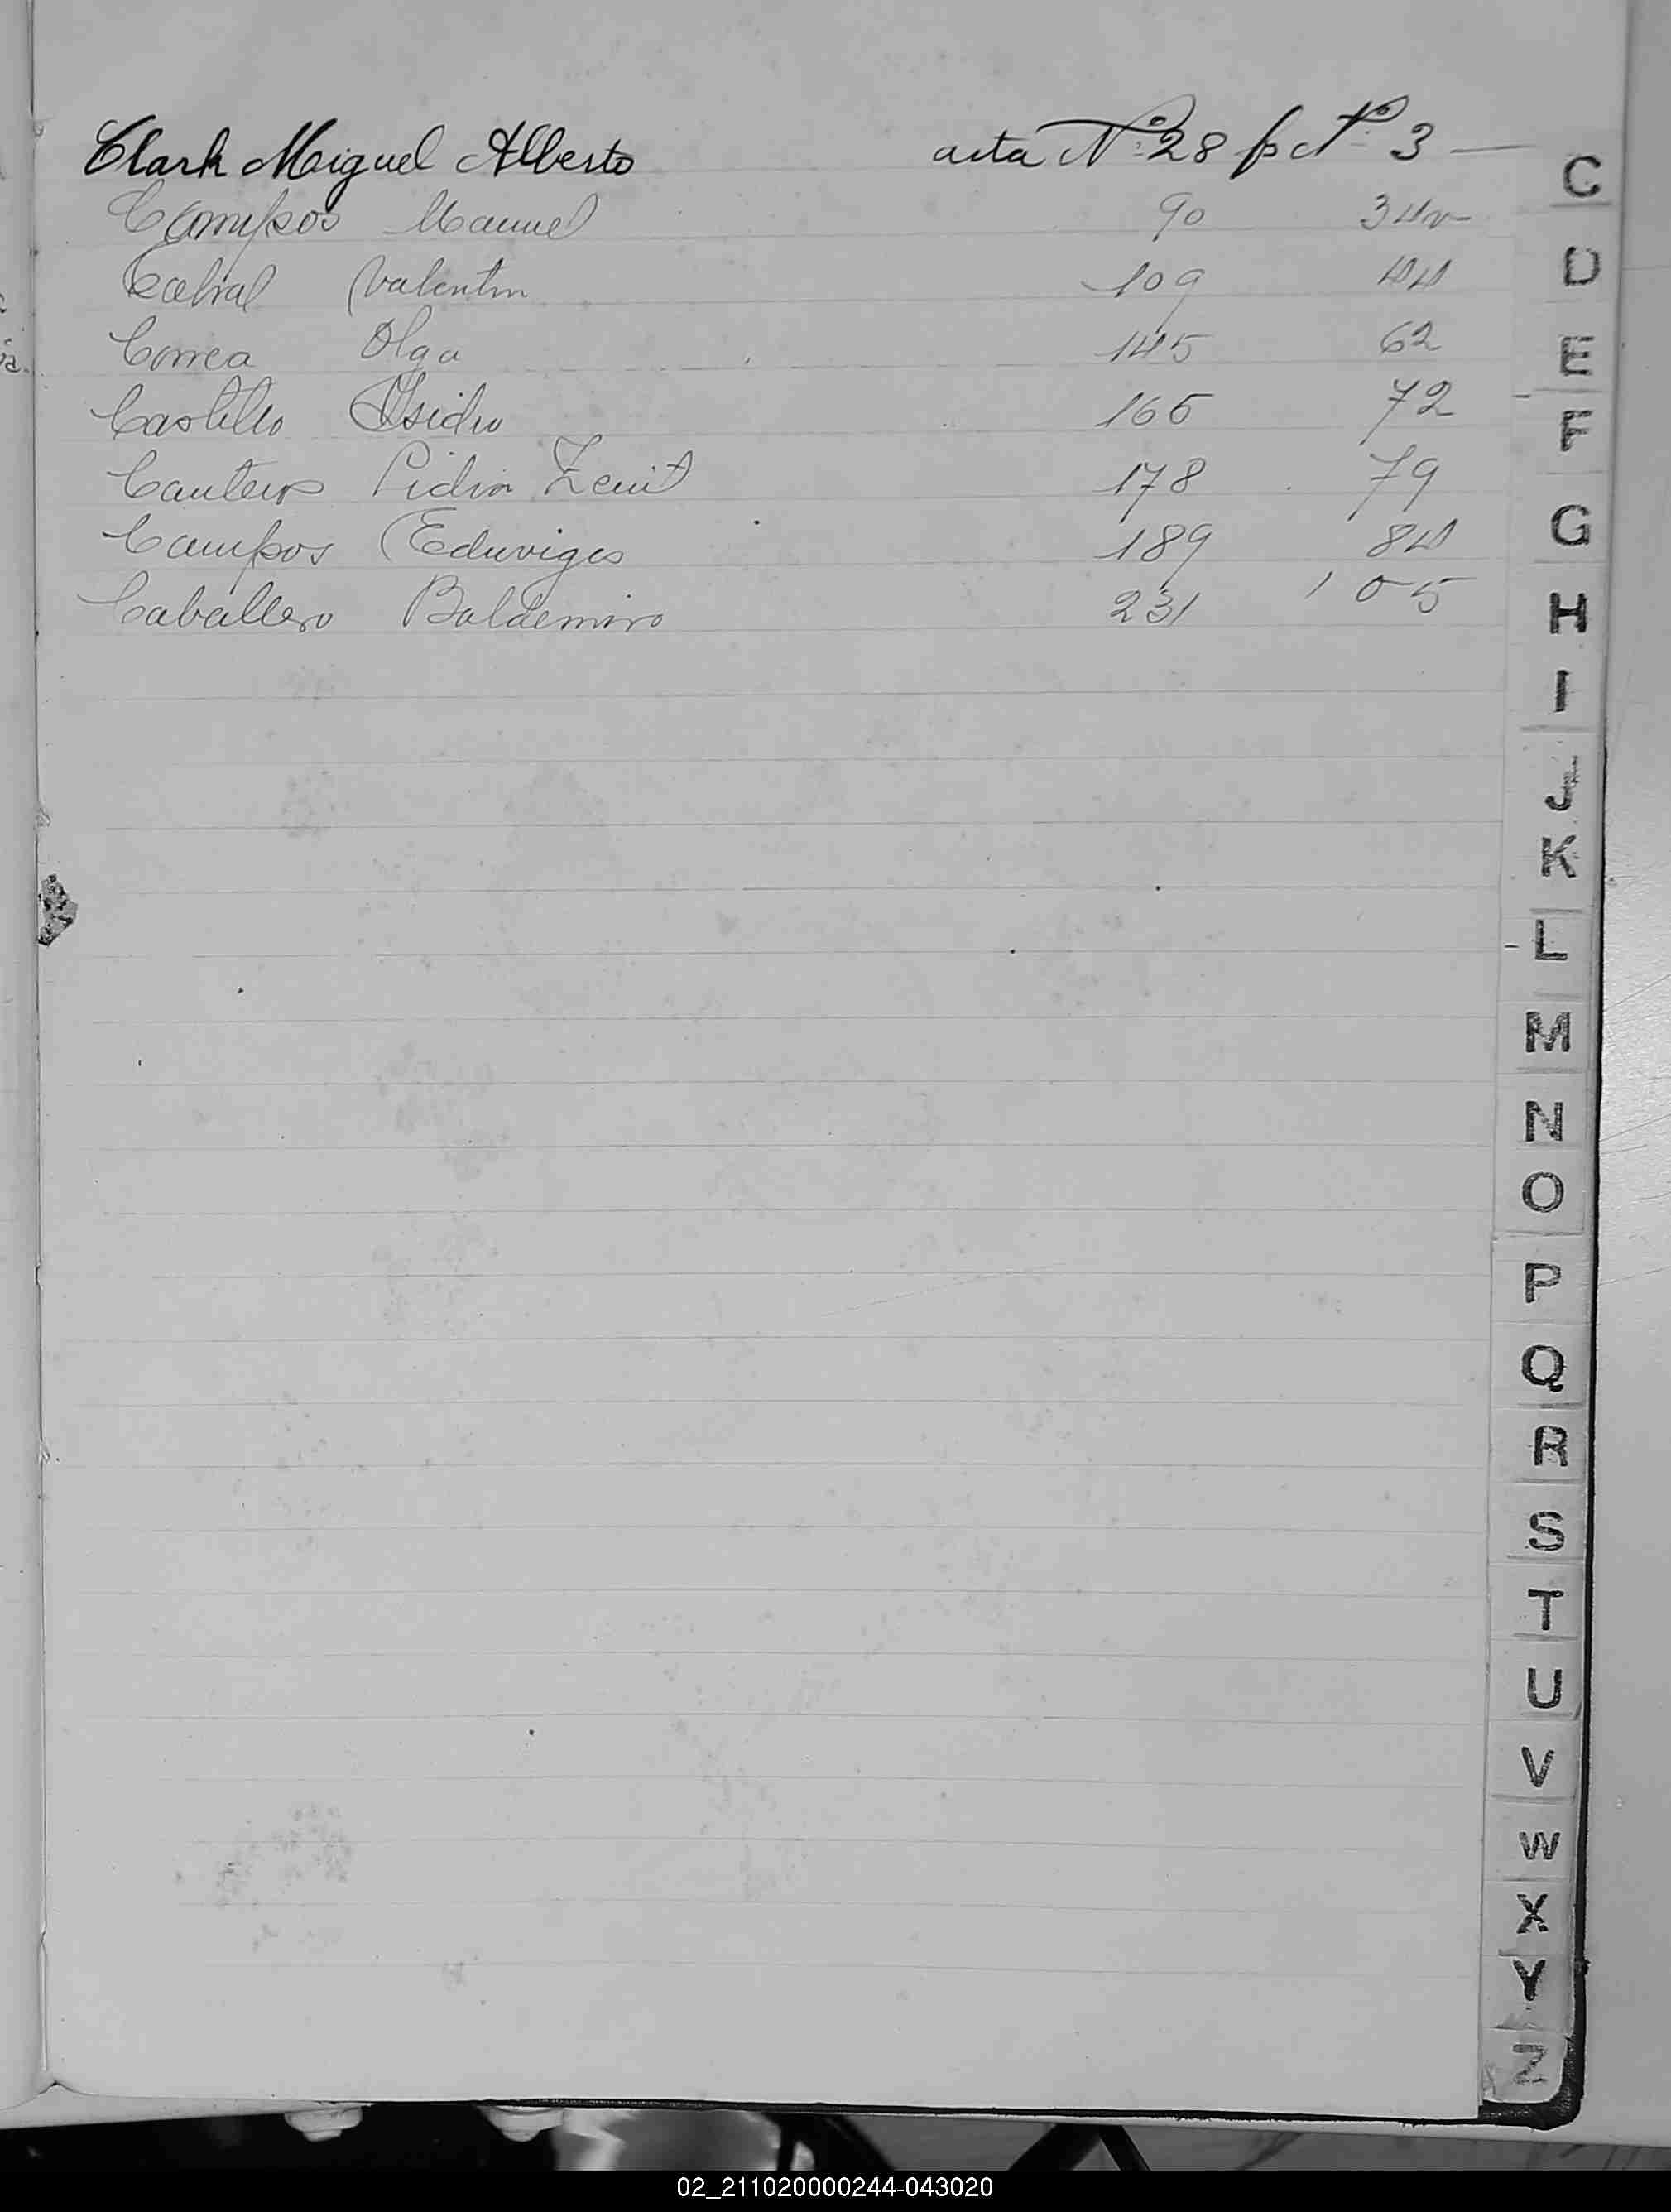 Clark Miguel Alberto acta Nº 28 f Nº 3
Campos Manuel 90 34v
Cabral Valentin 109 44
Correa Olga 145 62
Castillo Isidro 166 72
Cantero Lidia 178 79
Campos Eduviges 189 84
Caballero Baldemiro 231 105
C
D
E
F
G
H
I
J
K
L
M
N
O
P
Q
R
S
T
U
V
W
X
Y
Z
02_211020000244-043020